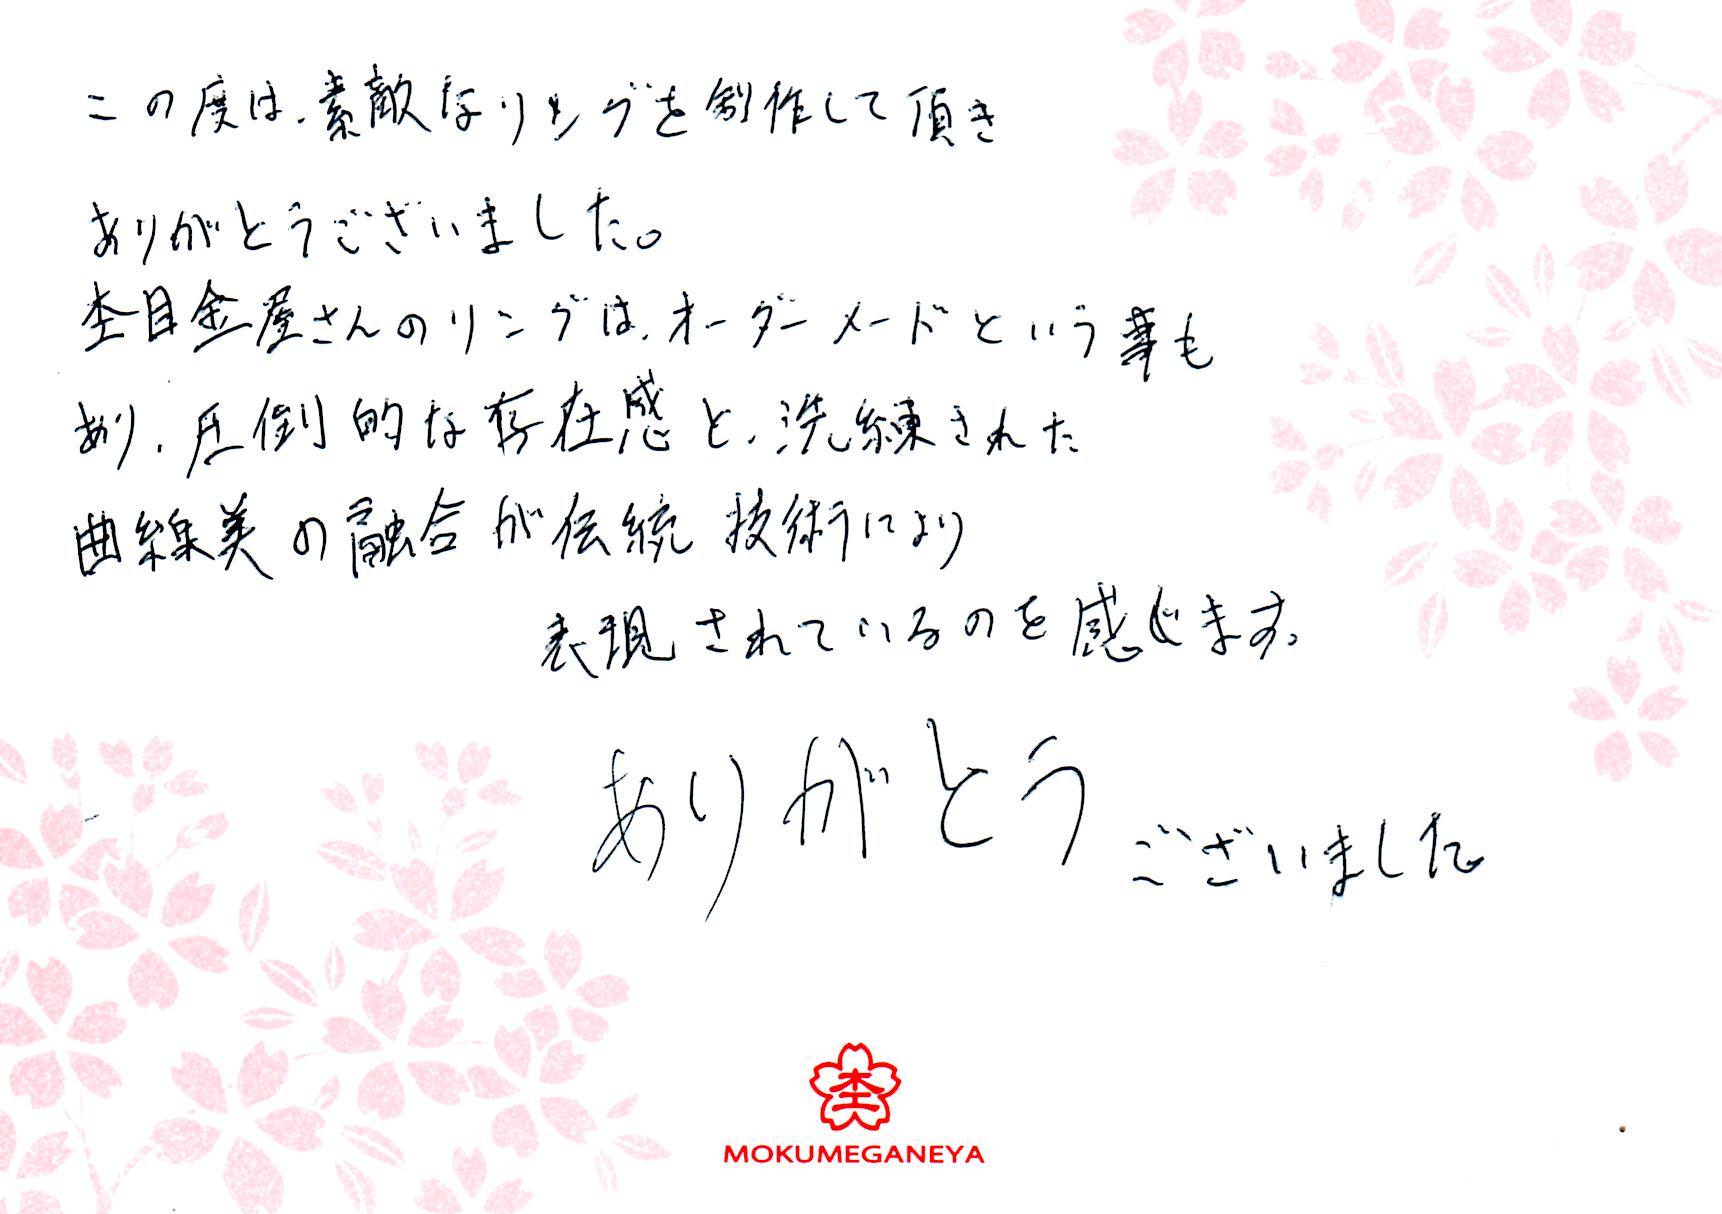 この度は、素敵なリングを創作して頂き
ありがとうございました。
杢目金屋さんのリングは、オーダーメードという事も
あり、圧倒的な存在感と、洗練された
曲線美の融合が伝統技術により
表現されているのを感じます。
ありがとうございました
杢
MOKUMEGANEYA